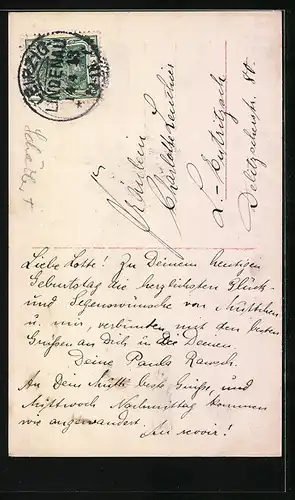 LEIPZIG
LINDENAU
Fräulein
Charlotte
L.-Eutritzsch
Delitzscherstr.
Liebe Lotte! Zu Deinem heutigen
Geburtstag die herzlichsten Glück-
und Segenswünsche von Muttchen
u. mir, verbunten mit den besten
Grüßen an Dich u. die Deinen.
Deine Paula
An Deine Mutti beste Grüße, und
Mittwoch Nachmittag kommen
wie angewandert.
Au revoir!